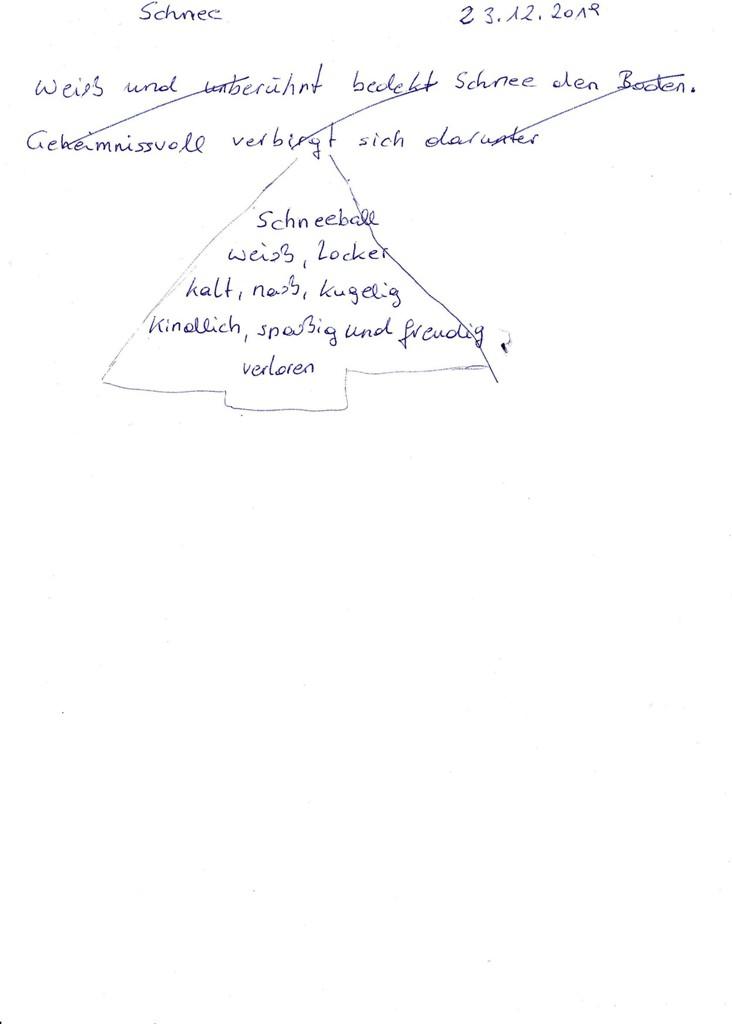 Schnee 23.12.2019
Weiß und unberührt bedekt Schnee den Boden.
Geheimnissvoll verbirgt sich darunter
Schneeball
weiß, locker
kalt, naß, kugelig
Kindlich, spaßig und freudig
verloren